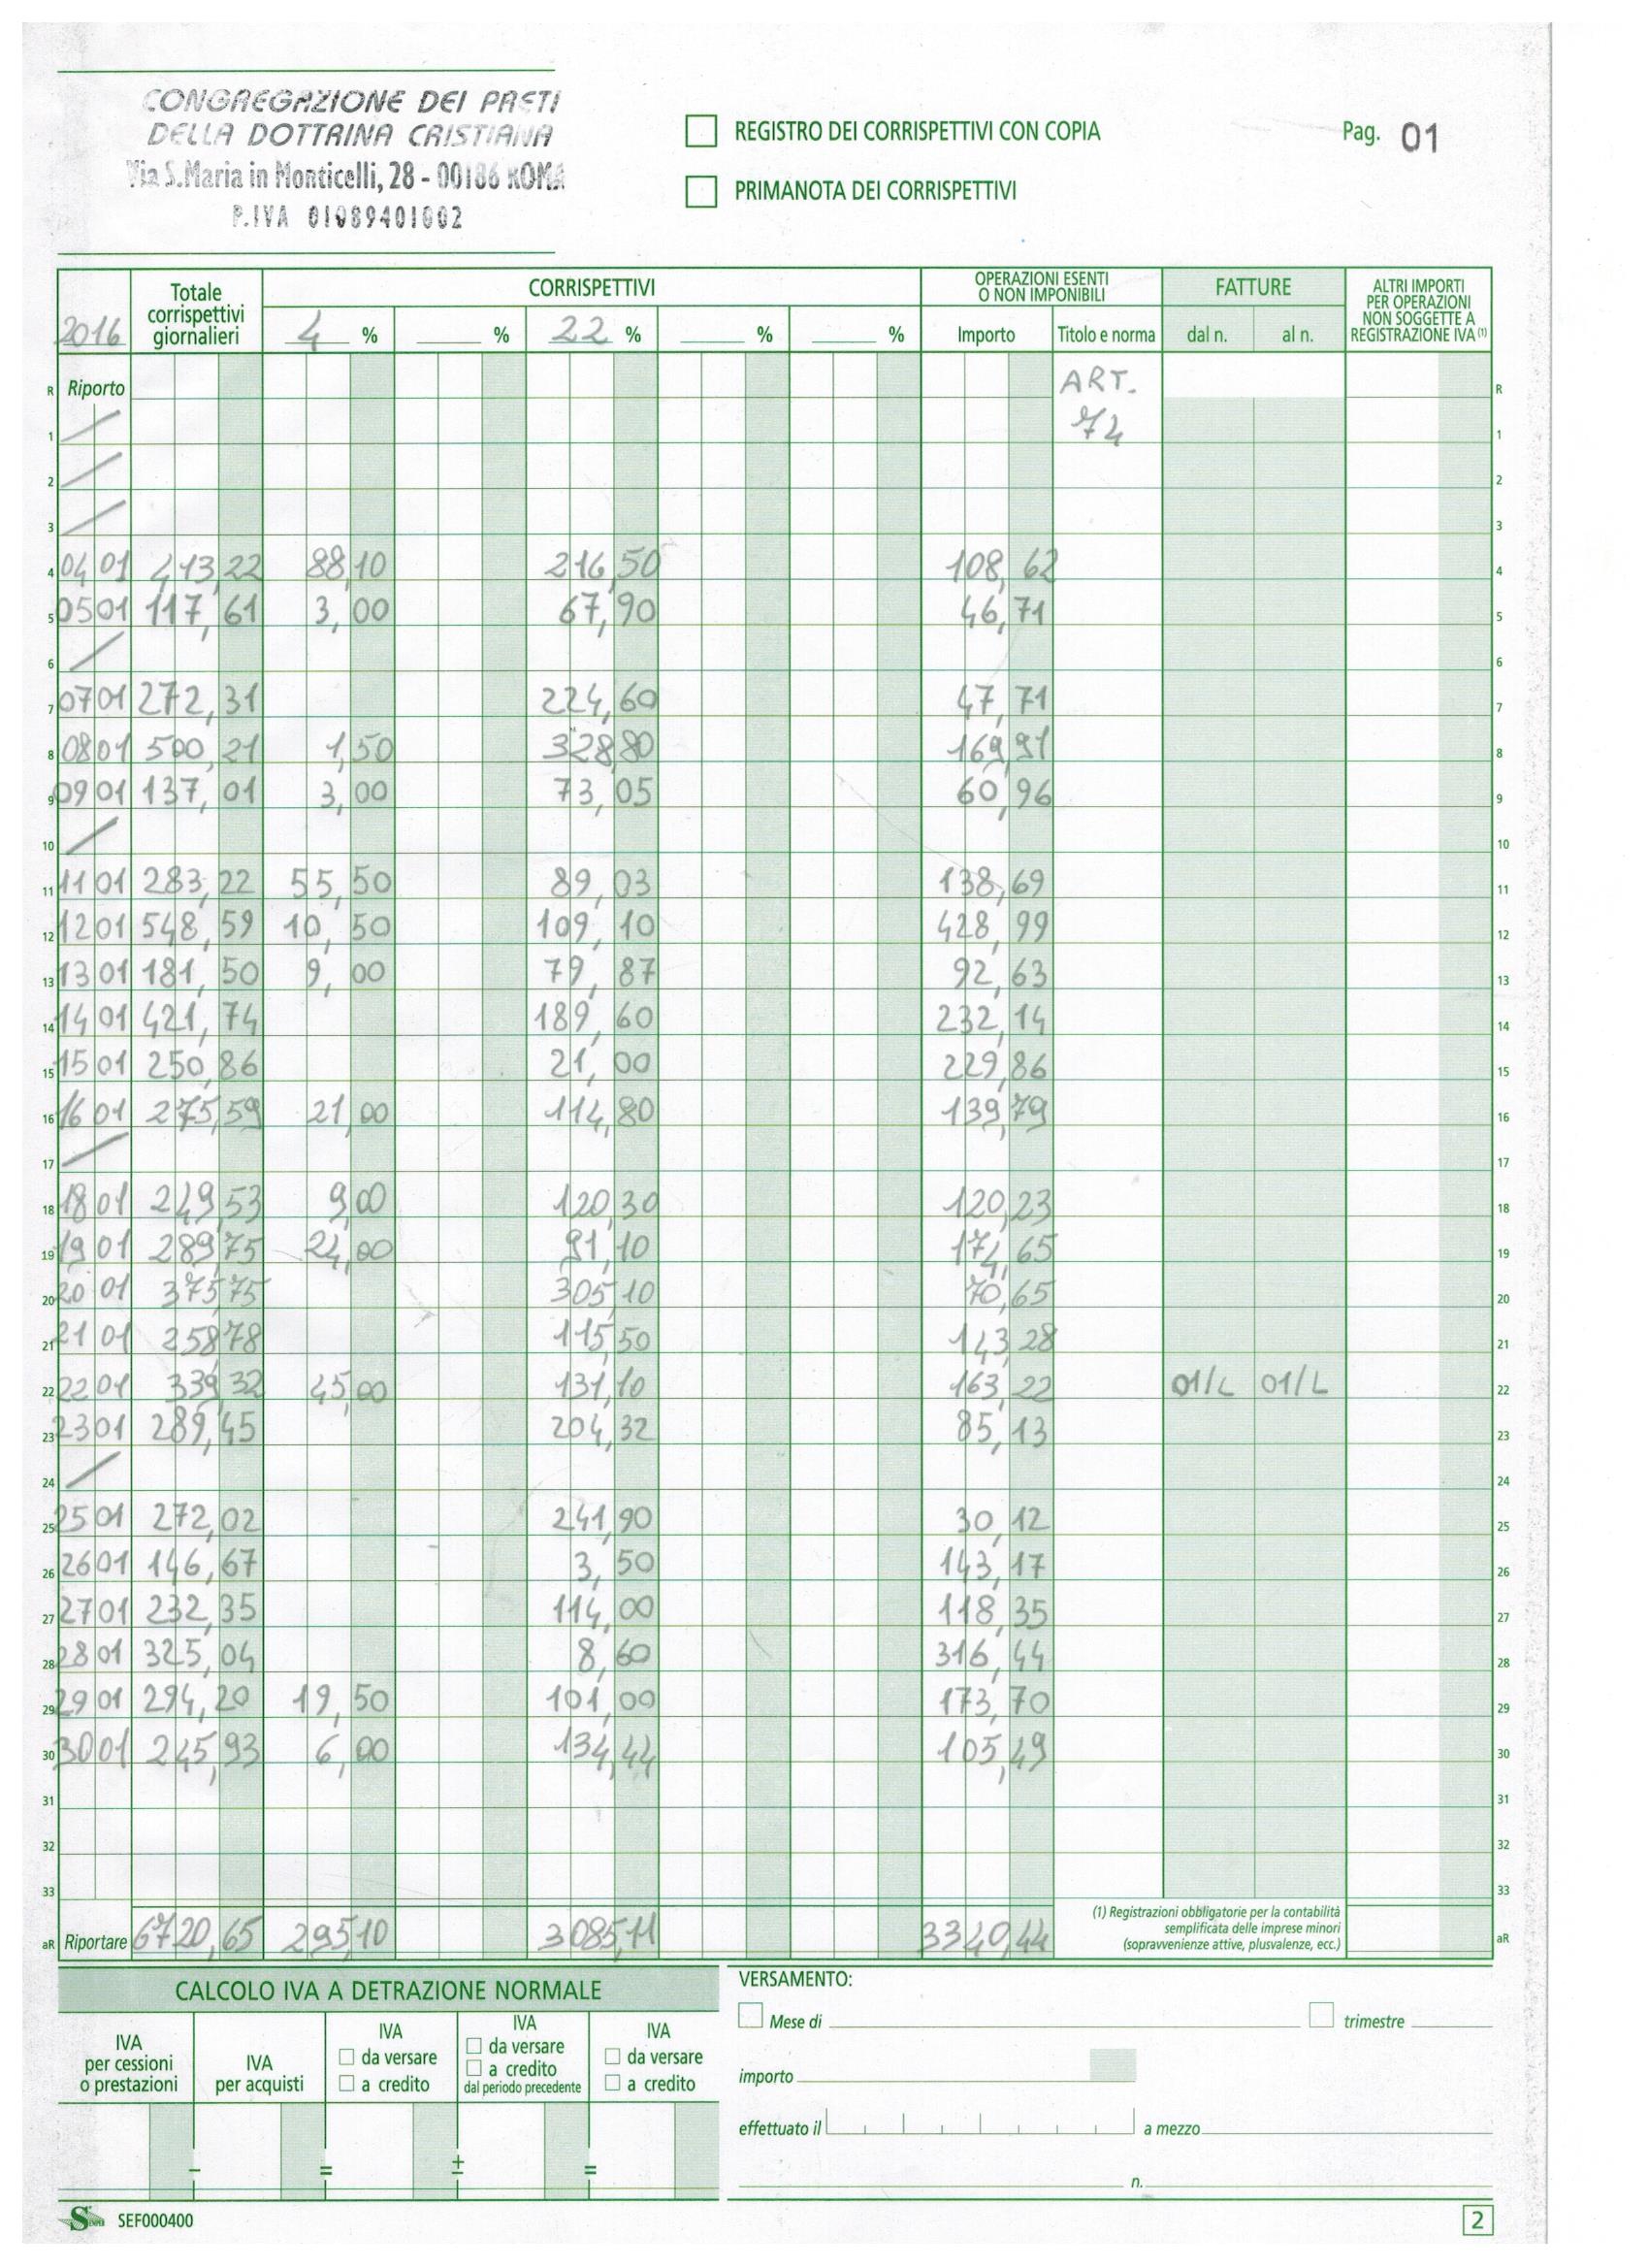 CONGREGAZIONE DEI PRETI
DELLA DOTTRINA CRISTIANA
Via S.Maria in Monticelli, 28 - 00186 ROMA
P.IVA 01089401002
REGISTRO DEI CORRISPETTIVI CON COPIA
PRIMANOTA DEI CORRISPETTIVI
Pag. 01
2016
Totale
corrispettivi
giornalieri
CORRISPETTIVI
4 % % 22 % % %
OPERAZIONI ESENTI
O NON IMPONIBILI
Importo Titolo e norma
FATTURE
dal n. al n.
ALTRI IMPORTI
PER OPERAZIONI
NON SOGGETTE A
REGISTRAZIONE IVA (1)
R Riporto ART. R
1 74 1
2 2
3 3
4 04 01 413,22 88,10 216,50 108,62 4
5 05 01 117,61 3,00 67,90 46,71 5
6 6
7 07 01 272,31 224,60 47,71 7
8 08 01 500,21 1,50 328,80 169,91 8
9 09 01 137,01 3,00 73,05 60,96 9
10 10
11 11 01 283,22 55,50 89,03 138,69 11
12 12 01 548,59 10,50 109,10 428,99 12
13 13 01 181,50 9,00 79,87 92,63 13
14 14 01 421,74 189,60 232,14 14
15 15 01 250,86 21,00 229,86 15
16 16 01 275,59 21,00 114,80 139,79 16
17 17
18 18 01 249,53 9,00 120,30 120,23 18
19 19 01 289,75 24,00 91,10 174,65 19
20 20 01 375,75 305,10 70,65 20
21 21 01 258,78 115,50 143,28 21
22 22 01 339,32 45,00 131,10 163,22 01/L 01/L 22
23 23 01 289,45 204,32 85,13 23
24 24
25 25 01 272,02 241,90 30,12 25
26 26 01 146,67 3,50 143,17 26
27 27 01 232,35 114,00 118,35 27
28 28 01 325,04 8,60 316,44 28
29 29 01 294,20 19,50 101,00 173,70 29
30 30 01 245,93 6,00 134,44 105,49 30
31 31
32 32
33 33
aR Riportare 6720,65 295,10 3085,11 3340,44 aR
(1) Registrazioni obbligatorie per la contabilità
semplificata delle imprese minori
(sopravvenienze attive, plusvalenze, ecc.)
CALCOLO IVA A DETRAZIONE NORMALE
IVA
per cessioni
o prestazioni
IVA
per acquisti
IVA
da versare
a credito
IVA
da versare
a credito
dal periodo precedente
IVA
da versare
a credito
− = ± =
VERSAMENTO:
Mese di trimestre
importo
effettuato il a mezzo
n.
SEMPER SEF000400
2